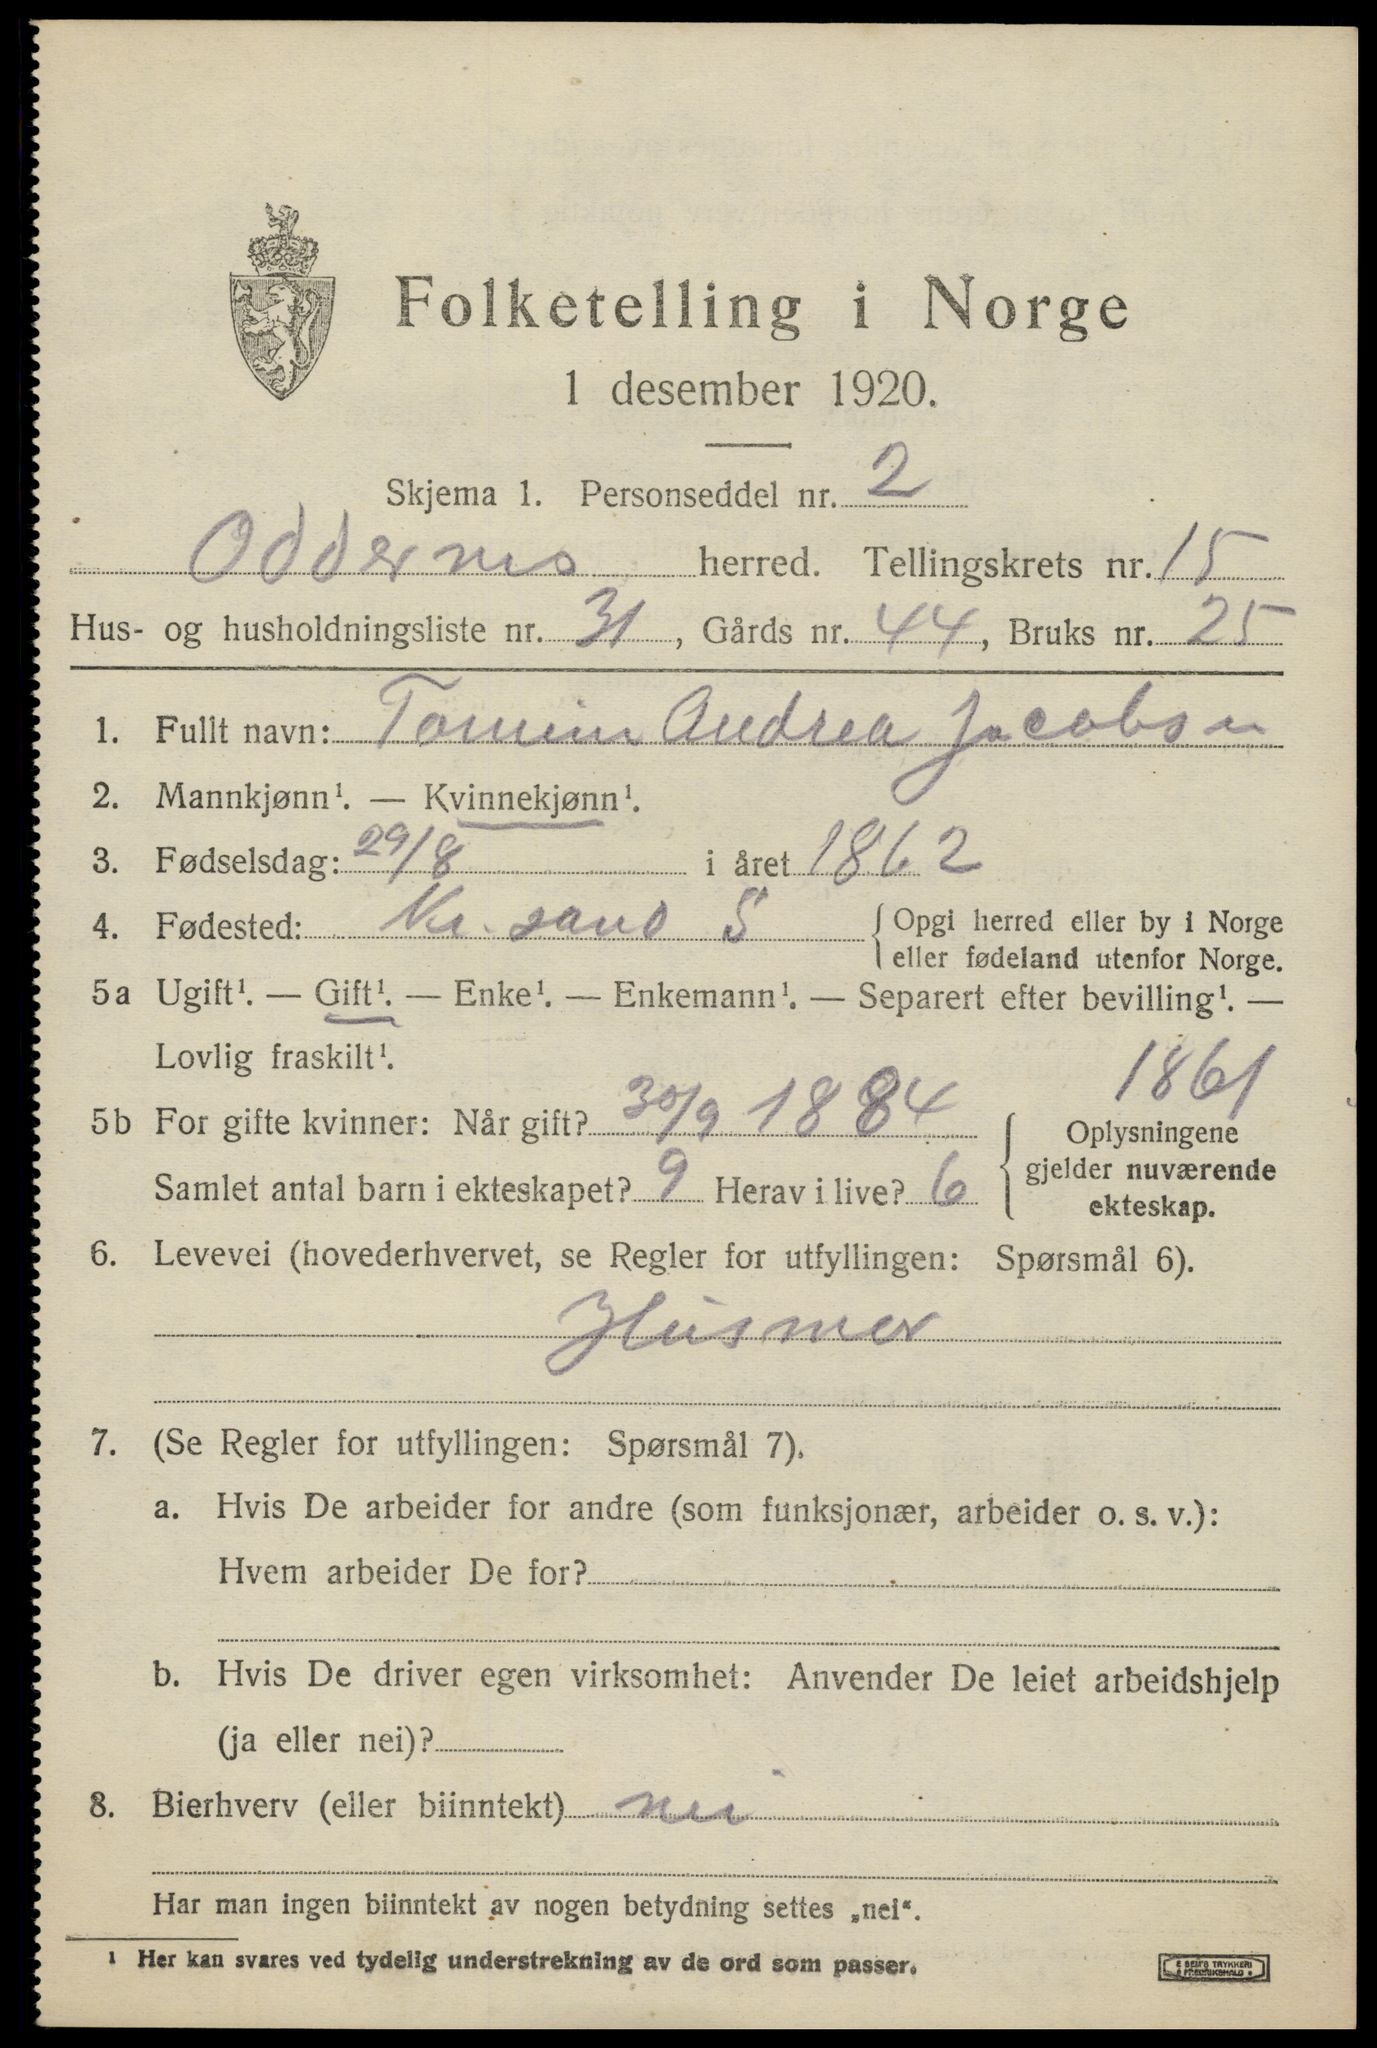 Folketelling i Norge
1 desember 1920.
Skjema 1. Personseddel nr. 2
Oddernes herred. Tellingskrets nr. 15
Hus- og husholdningsliste nr. 31, Gårds nr. 44, Bruks nr. 25
1. Fullt navn: Tomine Andrea Jacobsen
2. Mannkjønn¹. — Kvinnekjønn¹.
3. Fødselsdag: 29/8 i året 1862
4. Fødested: Kr. sand S { Opgi herred eller by i Norge
eller fødeland utenfor Norge.
5a Ugift¹. — Gift¹. — Enke¹. — Enkemann¹. — Separert efter bevilling¹. —
Lovlig fraskilt¹.
1861
5b For gifte kvinner: Når gift? 30/9 1884
Samlet antal barn i ekteskapet? 9 Herav i live? 6
Oplysningene
gjelder nuværende
ekteskap.
6. Levevei (hovederhvervet, se Regler for utfyllingen: Spørsmål 6).
Husmor
7. (Se Regler for utfyllingen: Spørsmål 7).
a. Hvis De arbeider for andre (som funksjonær, arbeider o. s. v.):
Hvem arbeider De for?
b. Hvis De driver egen virksomhet: Anvender De leiet arbeidshjelp
(ja eller nei)?
8. Bierhverv (eller biinntekt) nei
Har man ingen biinntekt av nogen betydning settes „nei“.
¹ Her kan svares ved tydelig understrekning av de ord som passer.
E SEM'S TRYKKERI
FREDRIKSHALD